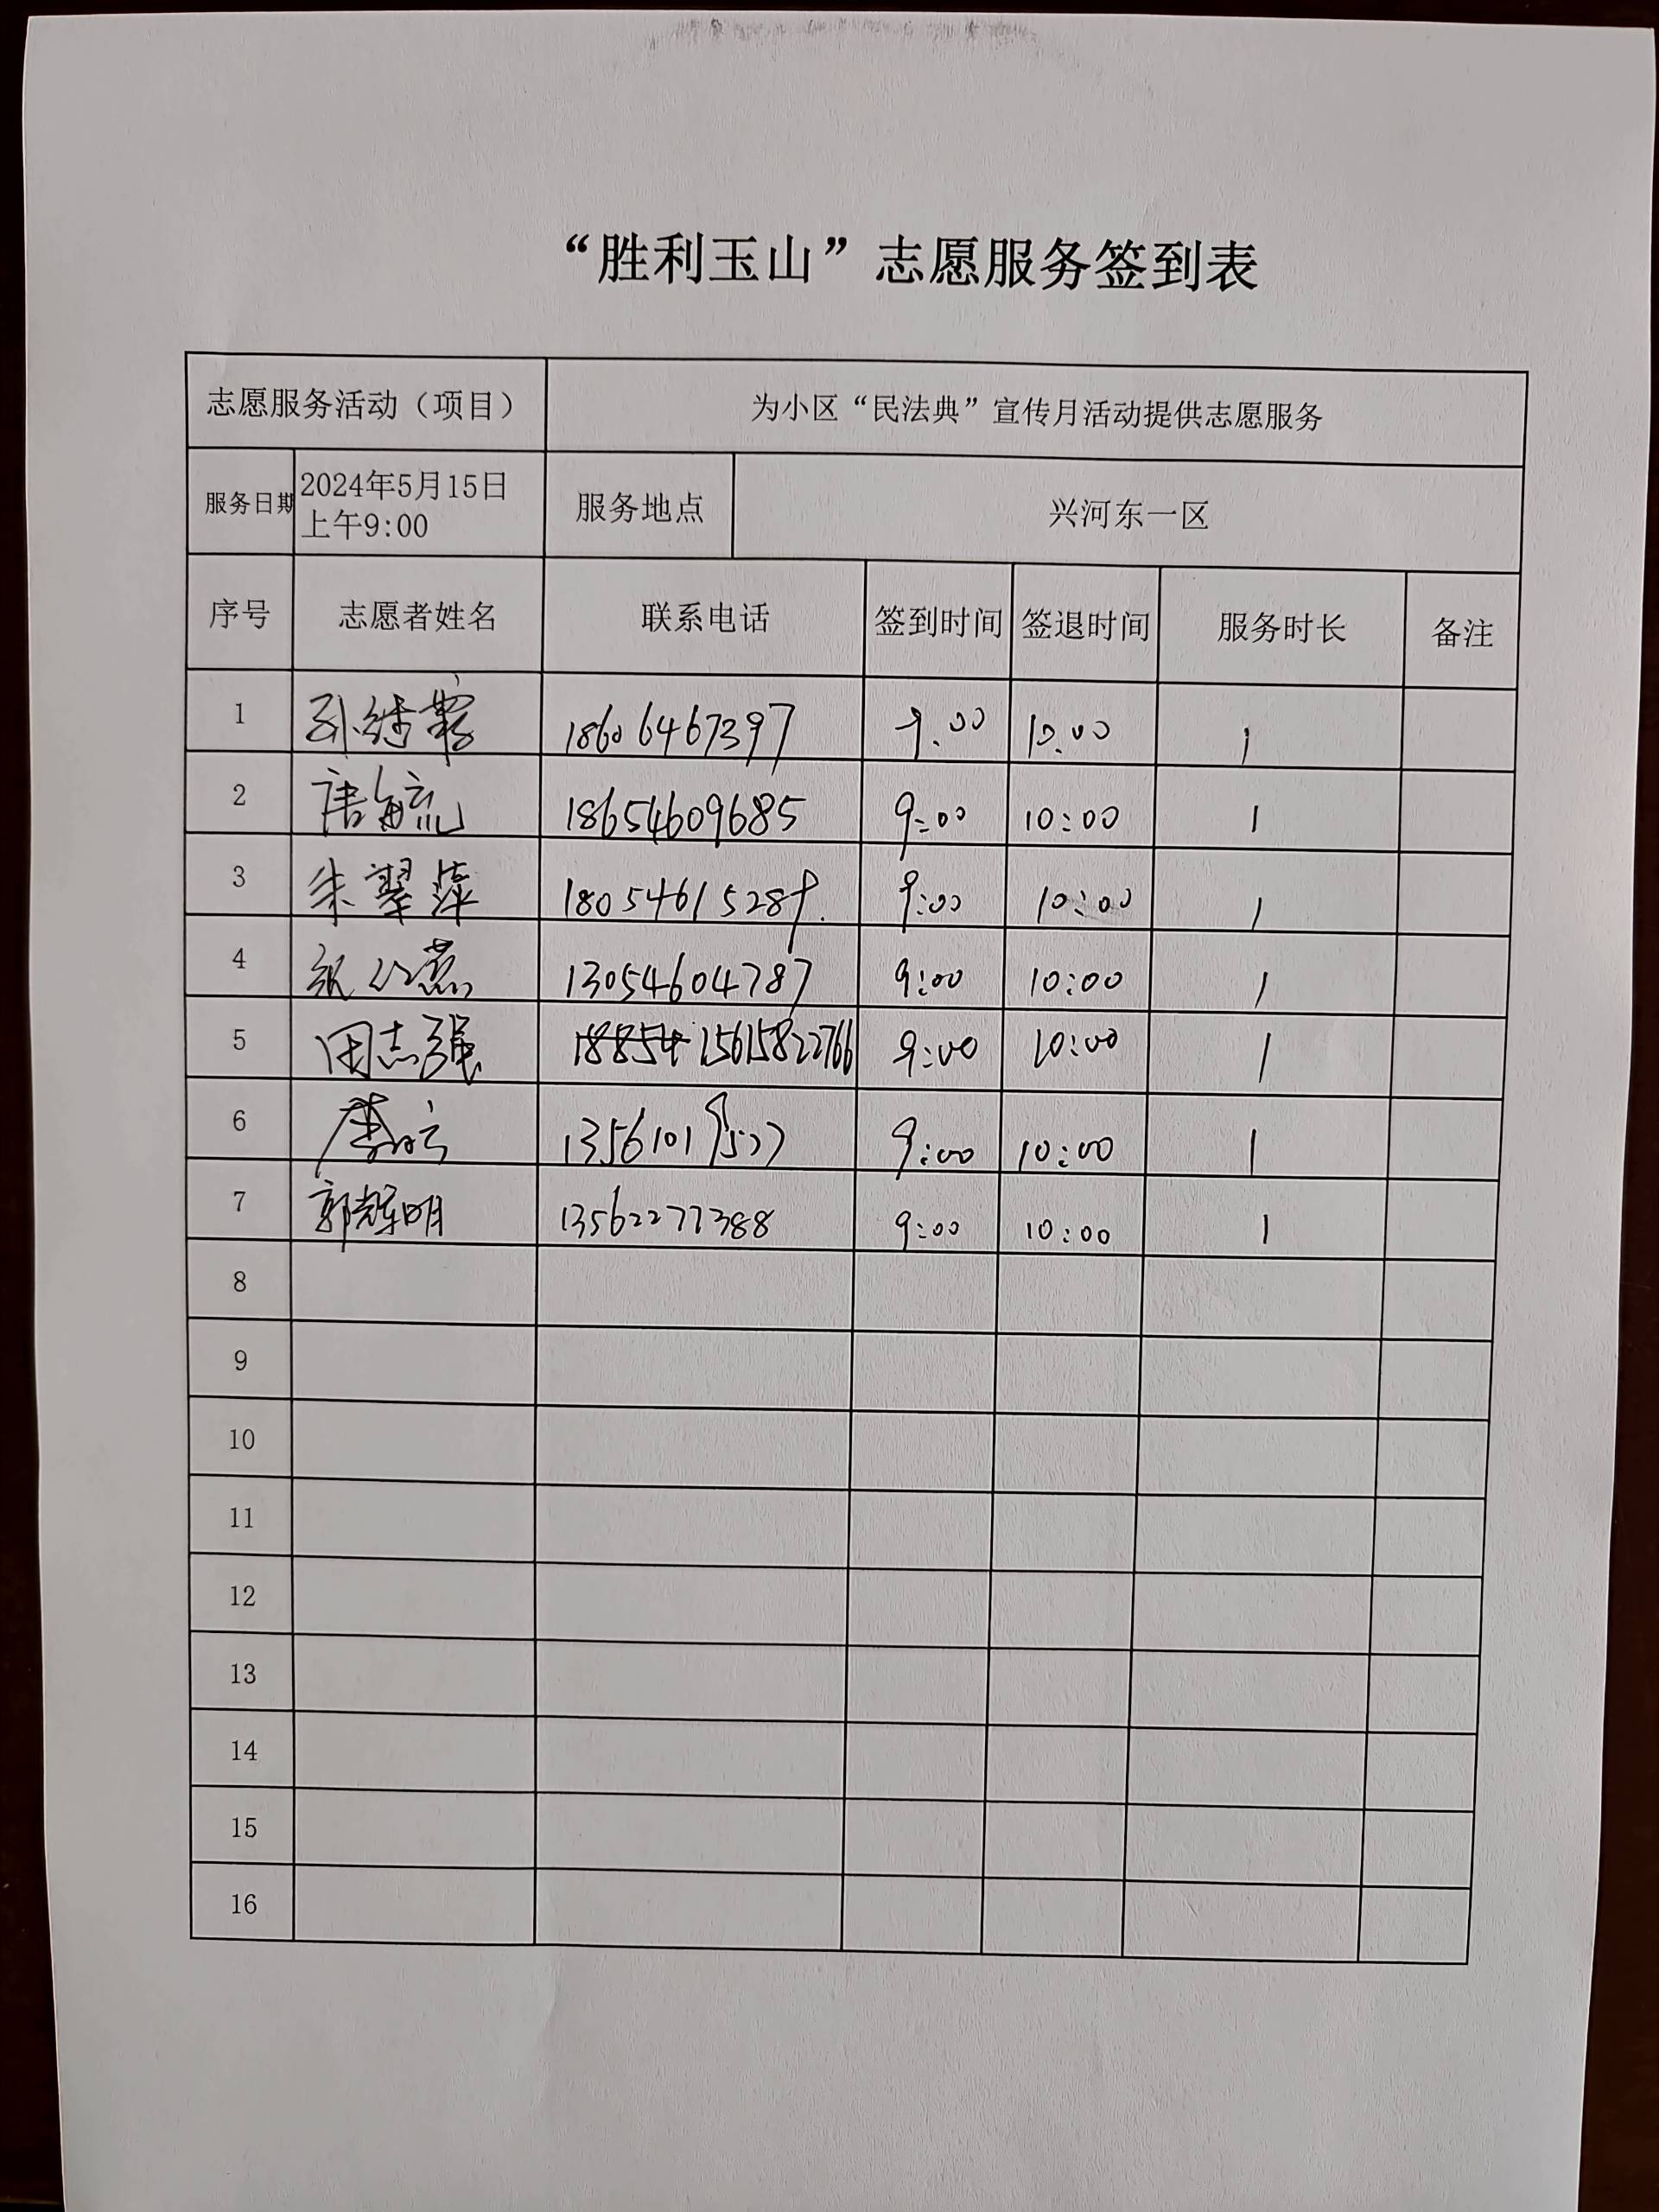 “胜利玉山”志愿服务签到表
志愿服务活动（项目） 为小区“民法典”宣传月活动提供志愿服务
服务日期 2024年5月15日 上午9:00 服务地点 兴河东一区
序号 志愿者姓名 联系电话 签到时间 签退时间 服务时长 备注
1 18606467397 9.00 10.00 1
2 唐毓流 18654609685 9:00 10:00 1
3 朱翠萍 18054615289. 9:00 10:00 1
4 13054604787 9:00 10:00 1
5 周志强 18854 15615822766 9:00 10:00 1
6 9:00 10:00 1
7 郭辉明 13562277388 9:00 10:00 1
8
9
10
11
12
13
14
15
16